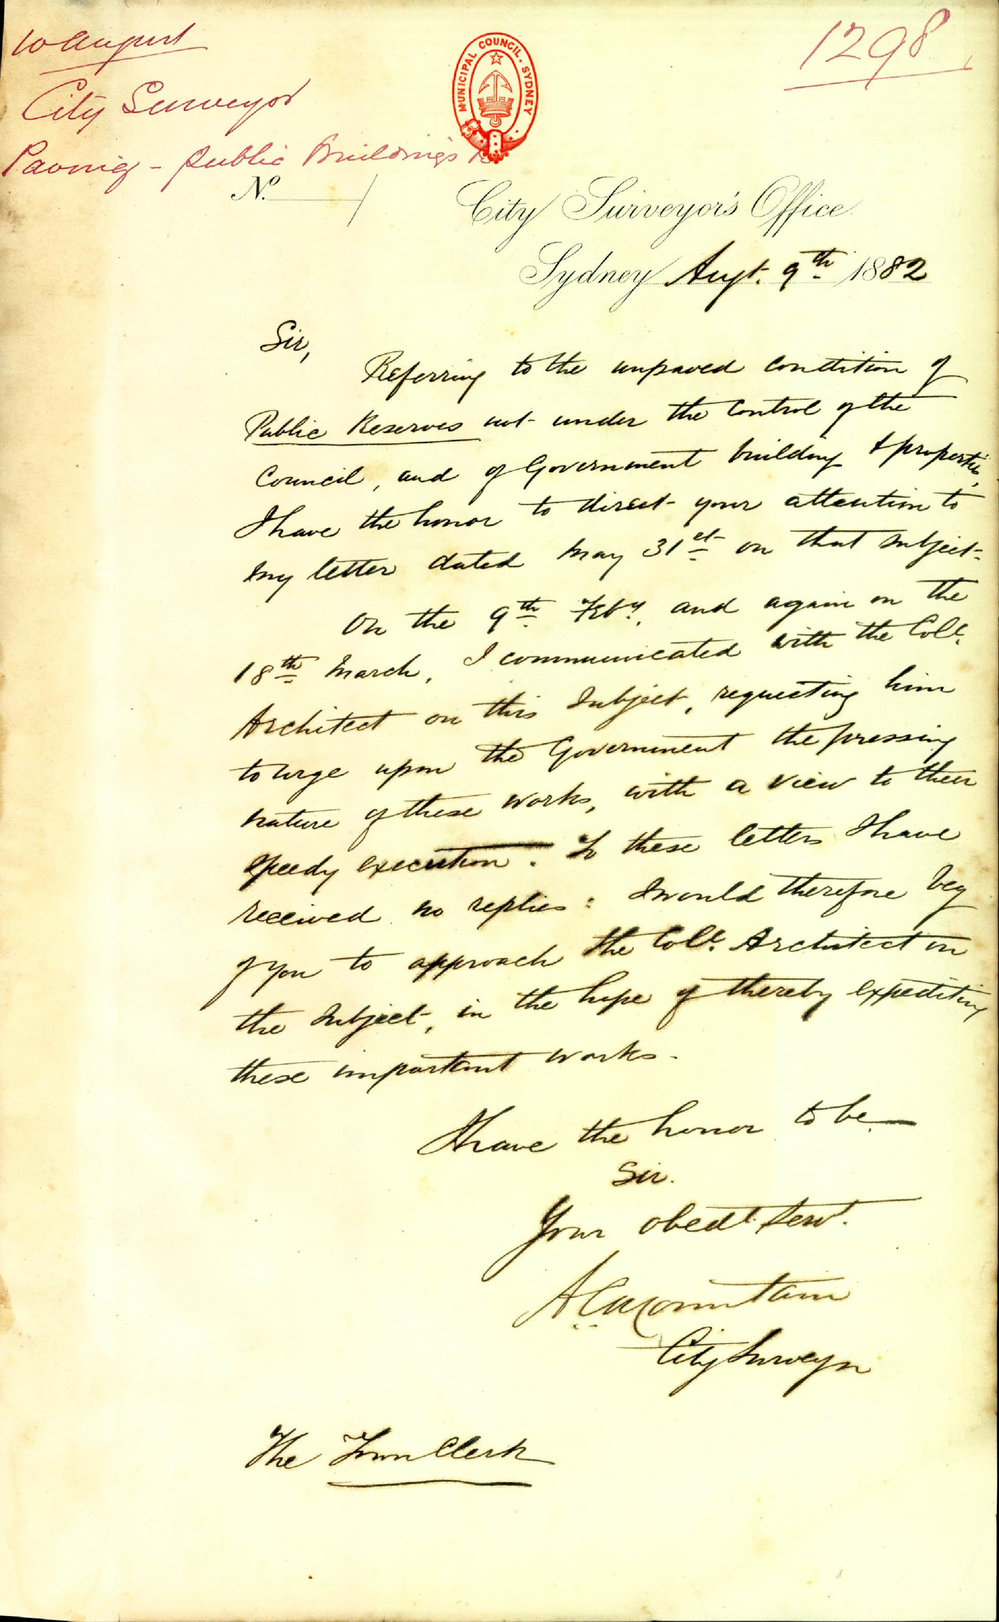 10 August
1298
City Surveyor
Paving - Public Buildings &c
MUNICIPAL COUNCIL. SYDNEY
No.
City Surveyor's Office
Sydney Augt. 9th 1882
Sir,
Referring to the unpaved condition of
Public Reserves not under the control of the
Council, and of Government building & properties,
I have the honor to direct your attention to
my letter dated May 31st on that subject.
On the 9th Feby. and again on the
18th March, I communicated with the Coll.
Architect on this Subject, requesting him
to urge upon the Government the pressing
nature of these works, with a view to their
speedy execution. To these letters I have
received no replies: I would therefore beg
of you to approach the Coll. Architect on
the Subject, in the hope of thereby expediting
these important works.
I have the honor to be
Sir.
Your obedt. Servt.
A C Mountain
City Surveyor
The Town Clerk